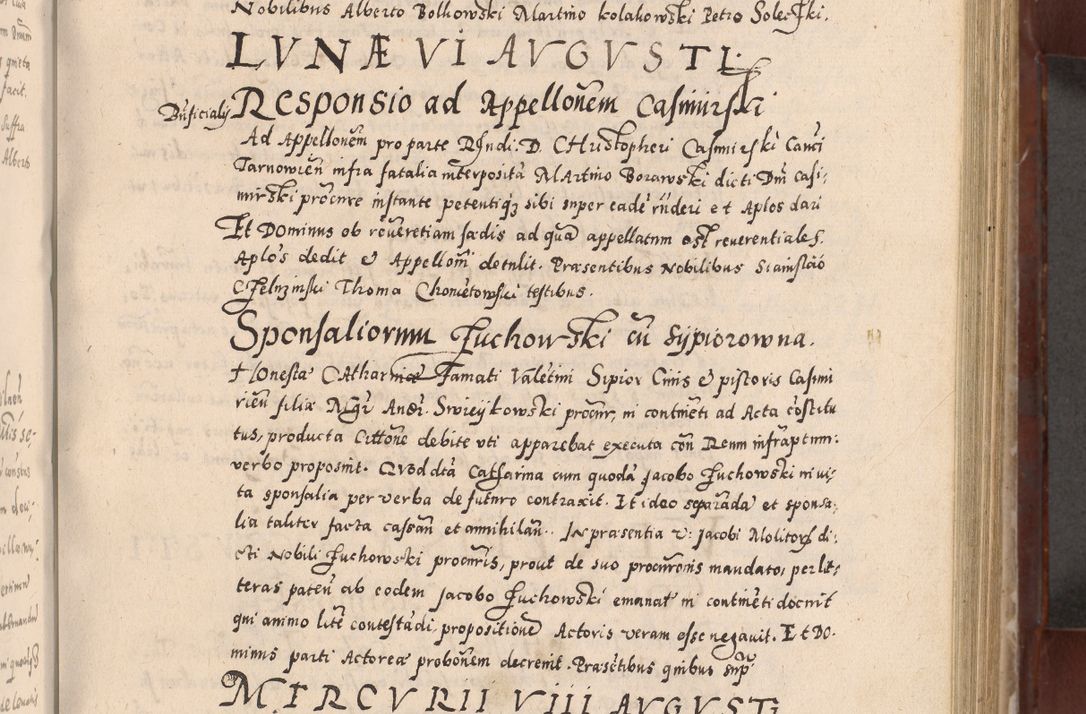 Nobilibus Alberto Bolkowski Martino kolakowski Petro Solecski.
LVNÆ VI AVGVSTI.
Responsio ad Appellonem Casimirski
Ad Appellonem pro parte Rndi. D. CHristopheri Casimirski Canci
Tarnowien infra fatalia interposita MArtino Borawski dicti Dni Casi-
mirski procure instante petentiq3 sibi super eade rnderi et Aplos dari
Et Dominus ob reueretiam sædis ad qua appellatum est reuerentiales.
Aplos dedit & Appelloni detulit. Præsentibus Nobilibus Stanislao
Thoma Chonietowski testibus.
Sponsaliorum Juchowski cu Sypiorowna.
Honestæ CAtharinæ Famati Valetini Sipior Ciuis & pistoris Casimi
rien filiæ Mgr Andr. Swieykowski procur, in contineti ad Acta costitu
tus, producta Cittone debite vti apparebat executa con Reum infraptum:
verbo proposuit. Quod dta Catharina cum quoda Jacobo Juchowski in ui-
ta sponsalia per verba de futuro contraxit. Et ideo separada et sponsa-
lia taliter facta cassan et annihilan. In præsentia v: Jacobi Molitoris di-
cti Nobili Juchowski procuris, prout de suo procuronis mandato, per lit-
teras paten ab eodem Jacobo Juchowski emanat in contineti docuit
qui animo lite contestadi, propositione Actoris veram esse negauit. Et Do-
minus parti Actoreæ probonem decreuit. Præsetibus quibus supr
MERCVRII VIII AVGVSTI